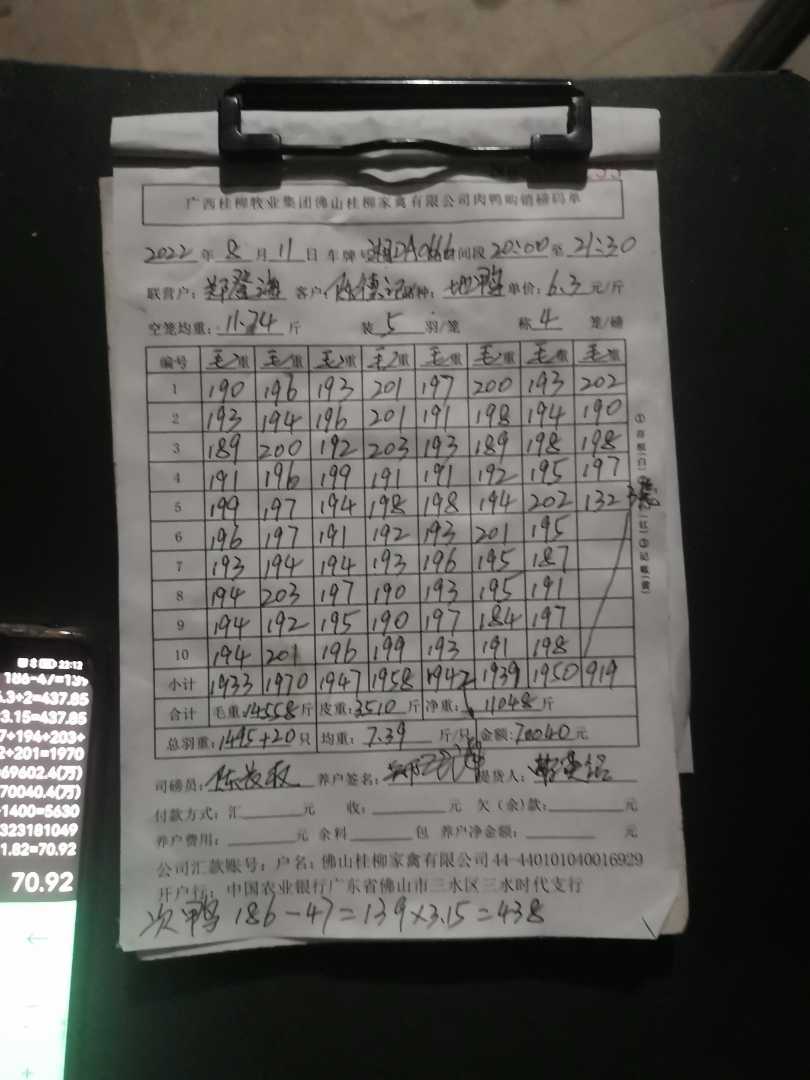 广西桂柳牧业集团佛山桂柳家禽有限公司肉鸭购销磅码单
2022 年 8 月 11 日 车牌 湘DA0666 时间段 20:00 至 21:30
联营户: 郑登海 客户: 陈德 种: 地鸭 单价: 6.3 元/斤
空笼均重: 11.74 斤 装 5 羽/笼 称 4 笼/磅
编号 毛重 毛重 毛重 毛重 毛重 毛重 毛重 毛重
1 190 196 193 201 197 200 193 202
2 193 194 196 201 191 198 194 190
3 189 200 192 203 193 189 198 198
4 191 196 199 191 191 192 195 197
5 199 197 194 198 198 194 202 132 3笼
6 196 197 191 192 193 201 195
7 193 194 194 193 196 195 187
8 194 203 197 190 193 195 191
9 194 192 195 190 197 184 197
10 194 201 196 199 193 191 198
小计 1933 1970 1947 1958 1942 1939 1950 919
合计 毛重: 14558 斤 皮重: 3510 斤 净重: 11048 斤
总羽重: 1495+20 只 均重: 7.39 斤/只 金额: 70040 元
司磅员: 陈 权 养户签名: 提货人:
付款方式: 汇 元 收: 元 欠(余)款: 元
养户费用: 元 余料 包 养户净金额: 元
公司汇款账号: 户名: 佛山桂柳家禽有限公司 44-440101040016929
开户行: 中国农业银行广东省佛山市三水区三水时代支行
次鸭 186-47=139×3.15=438
①存根(白)
(红)③记账(黄)
22:12
186-47=139
6.3÷2=437.85
3.15=437.85
7+194+203+
2+201=1970
69602.4(万)
70040.4(万)
1400=5630
323181049
1.82=70.92
70.92